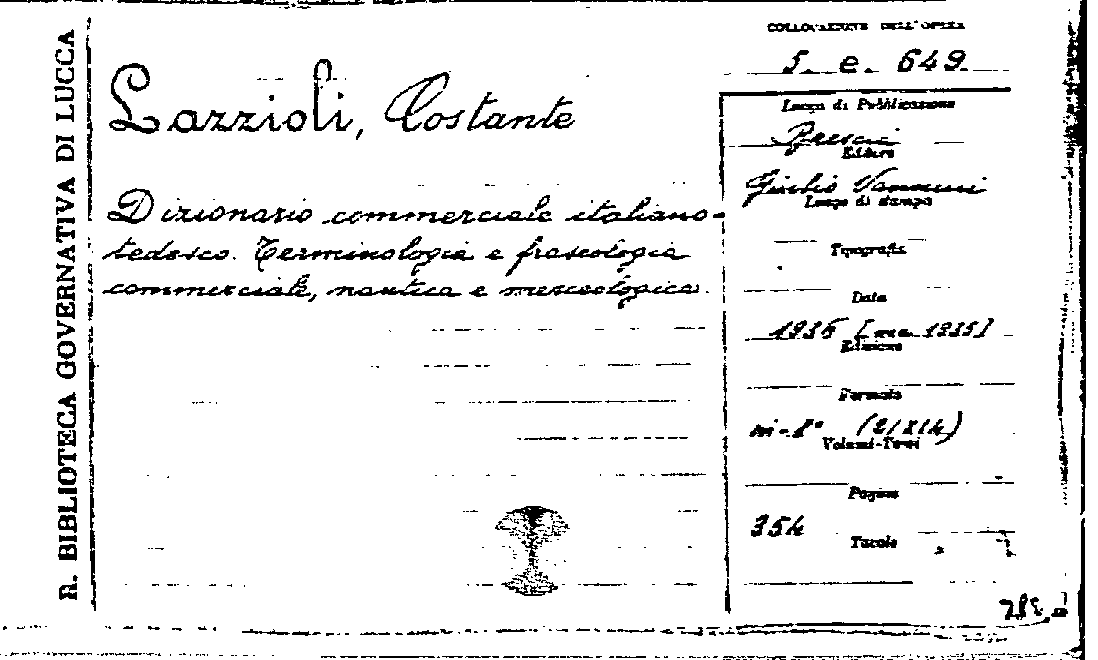 R. BIBLIOTECA GOVERNATIVA DI LUCCA
Lazzioli, Costante
Dizionario commerciale italiano-
tedesco. Terminologia e fraseologia
commerciale, nautica e merceologica.
COLLOCAZIONE DELL'OPERA
5. e. 649.
Luogo di Pubblicazione
Brescia
Editore
Giulio Vannini
Luogo di stampa
Tipografia
Data
1936 [ma 1935]
Edizione
Formato
in-8° (21X14)
Volumi-Tomi
Pagine
354
Tavole